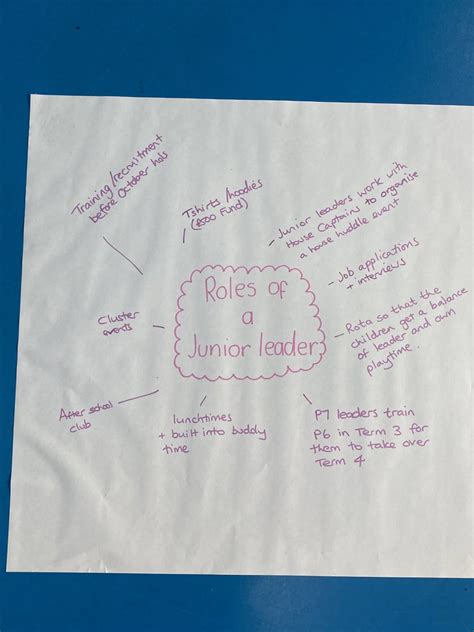 Training/recruitment
before October hols
Tshirts/hoodies
(£500 Fund)
Junior leaders work with
House Captains to organise
a house huddle event
Job applications
+ interviews
Roles of
a
Junior leader
Rota so that the
children get a balance
of leader and own
playtime.
Cluster
events
After school
club
lunchtimes
+ built into buddy
time
P7 leaders train
P6 in Term 3 for
them to take over
Term 4